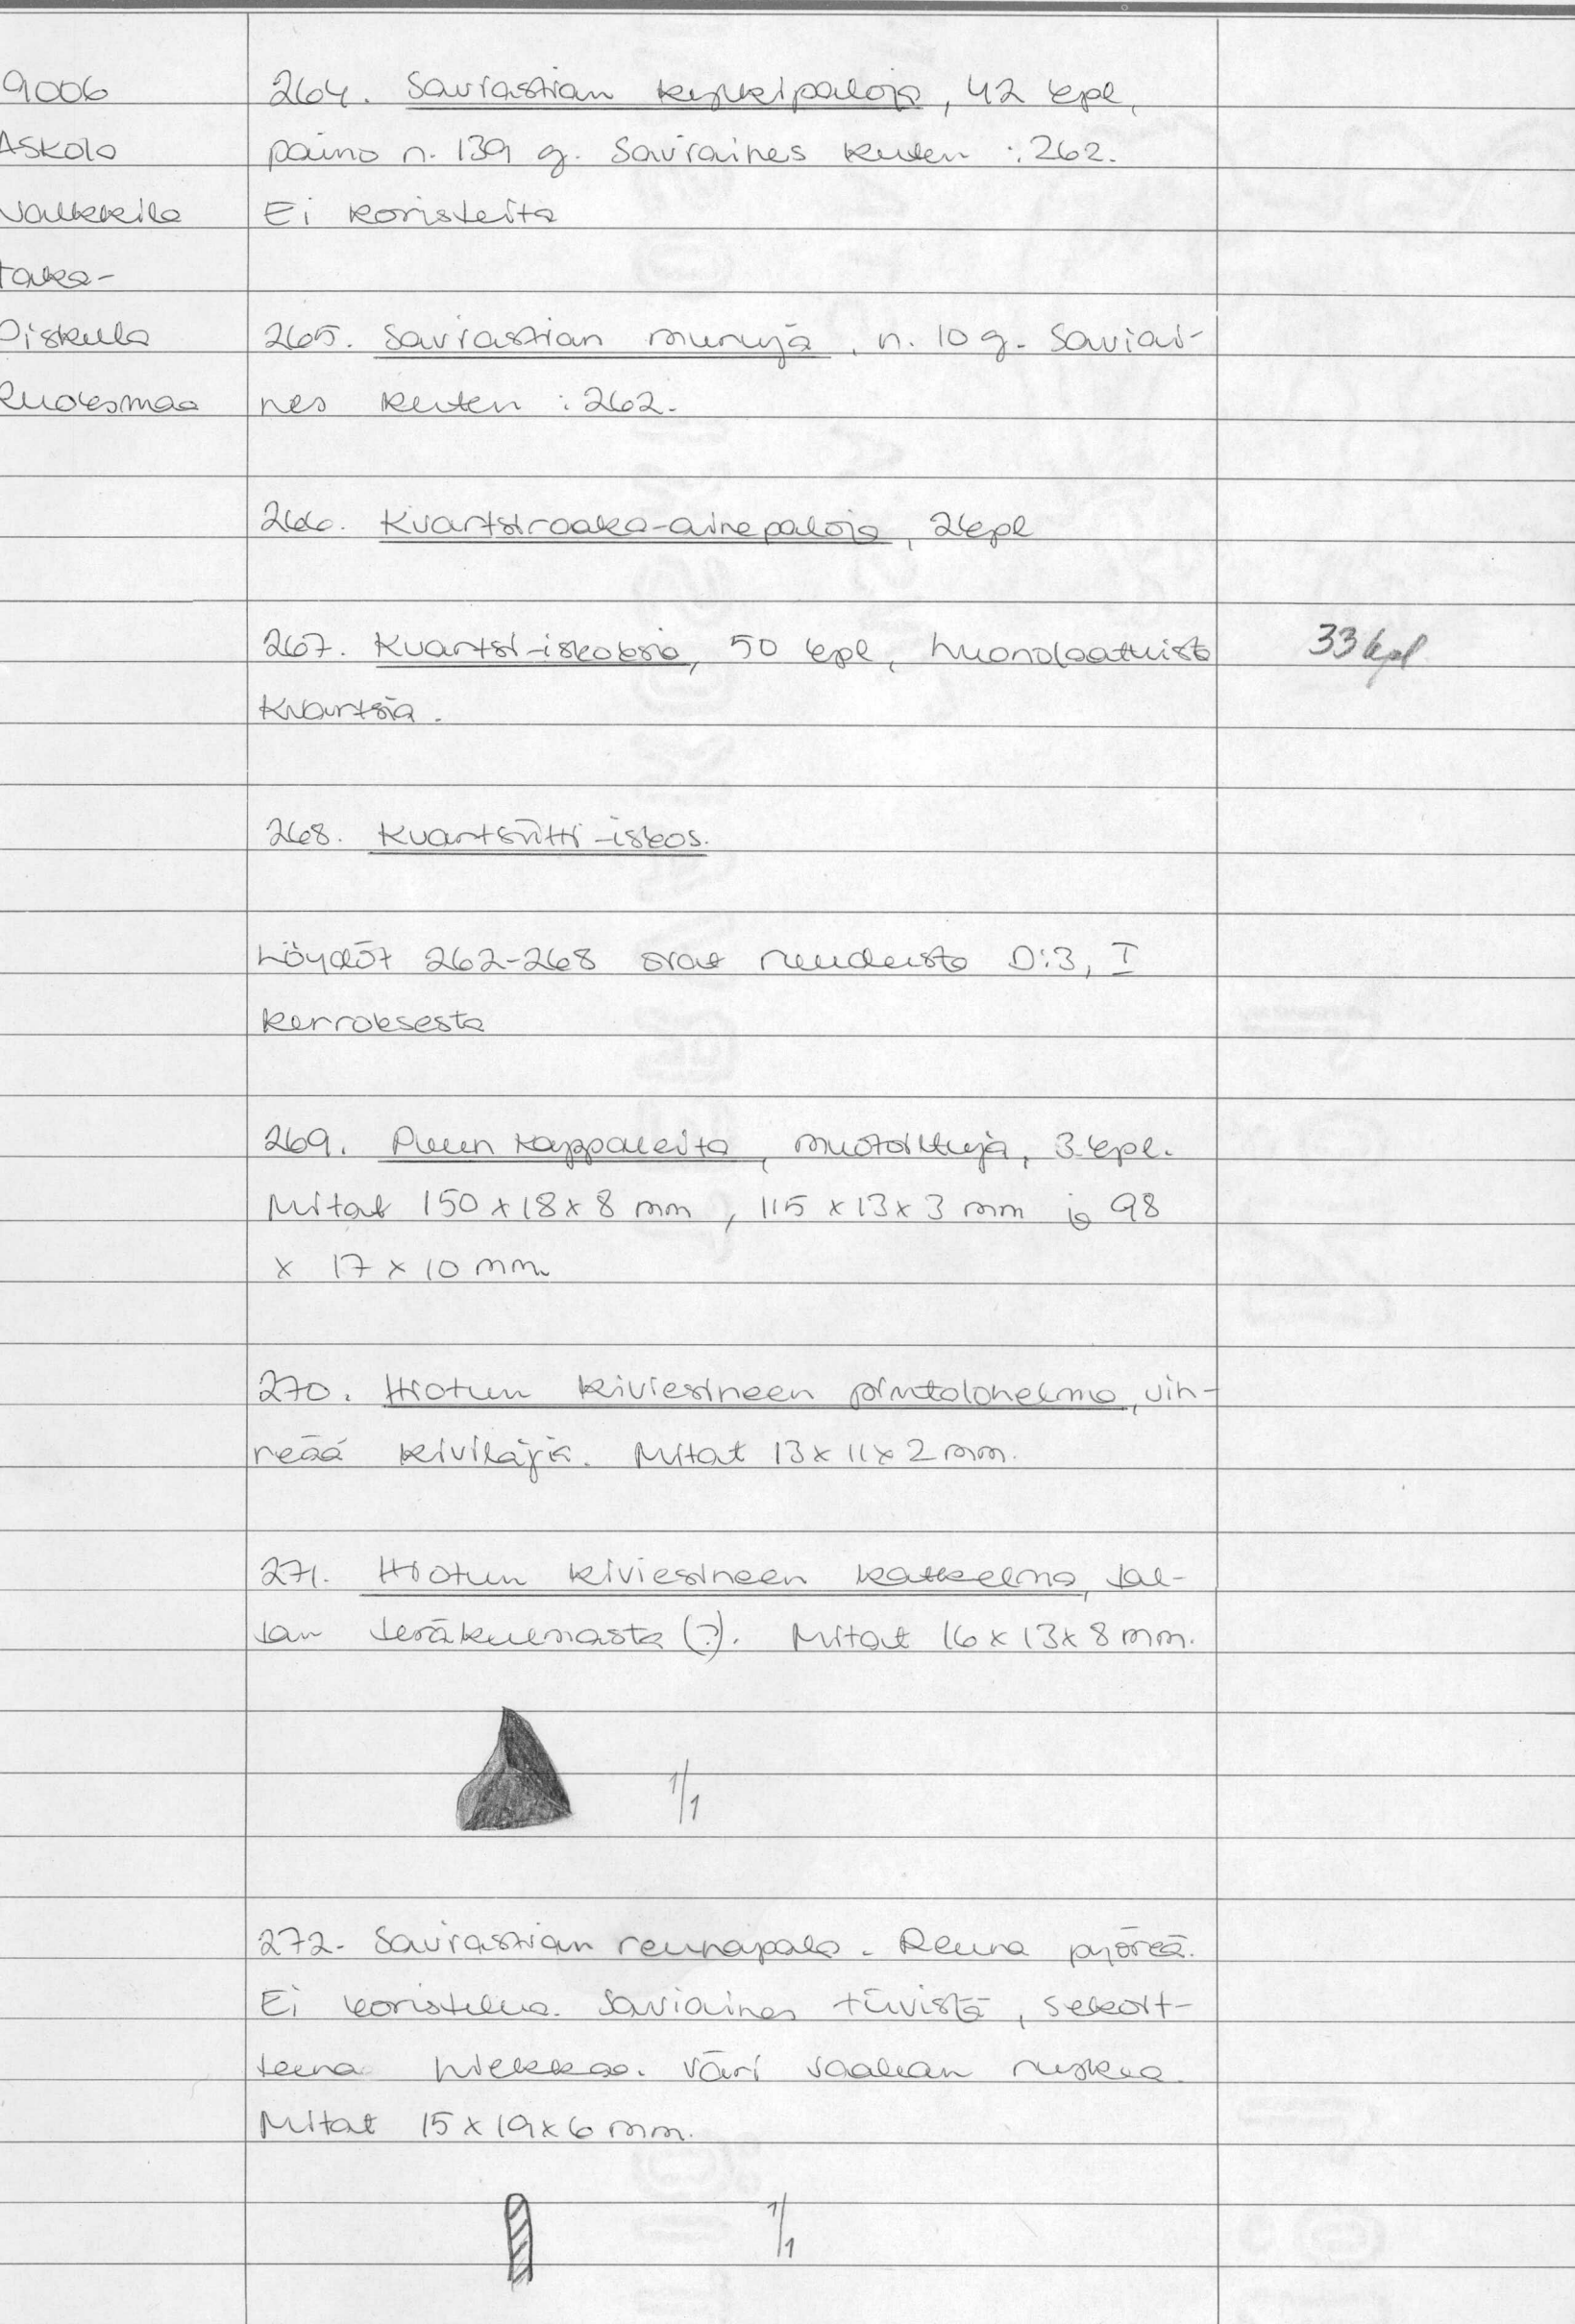 9006
Askola
Valkkila
Taka-
Piskula
Ruoksmaa
264. Saviastian kylkipaloja, 42 kpl,
paino n. 139 g. Saviaines kuten :262.
Ei koristeita
265. Saviastian muruja, n. 10 g. Saviai-
nes kuten :262.
266. Kvartsiraaka-ainepaloja, 2 kpl
267. Kvartsi-iskoksia, 50 kpl, huonolaatuista
kvartsia.
33 kpl
268. Kvartsiitti-iskos.
Löydöt 262-268 ovat ruudusta D:3, I
kerroksesta
269. Puun kappaleita, muotoiltuja, 3 kpl.
Mitat 150 x 18 x 8 mm, 115 x 13 x 3 mm ja 98
x 17 x 10 mm.
270. Hiotun kiviesineen pintalohkelma, vih-
reää kivilajia. Mitat 13 x 11 x 2 mm.
271. Hiotun kiviesineen katkelma, tal-
tan teräkulmasta (?). Mitat 16 x 13 x 8 mm.
1/1
272. Saviastian reunapala. Reuna pyöreä.
Ei koristelua. Saviaines tiivistä, sekoit-
teena hiekkaa. Väri vaalean ruskea.
Mitat 15 x 19 x 6 mm.
1/1